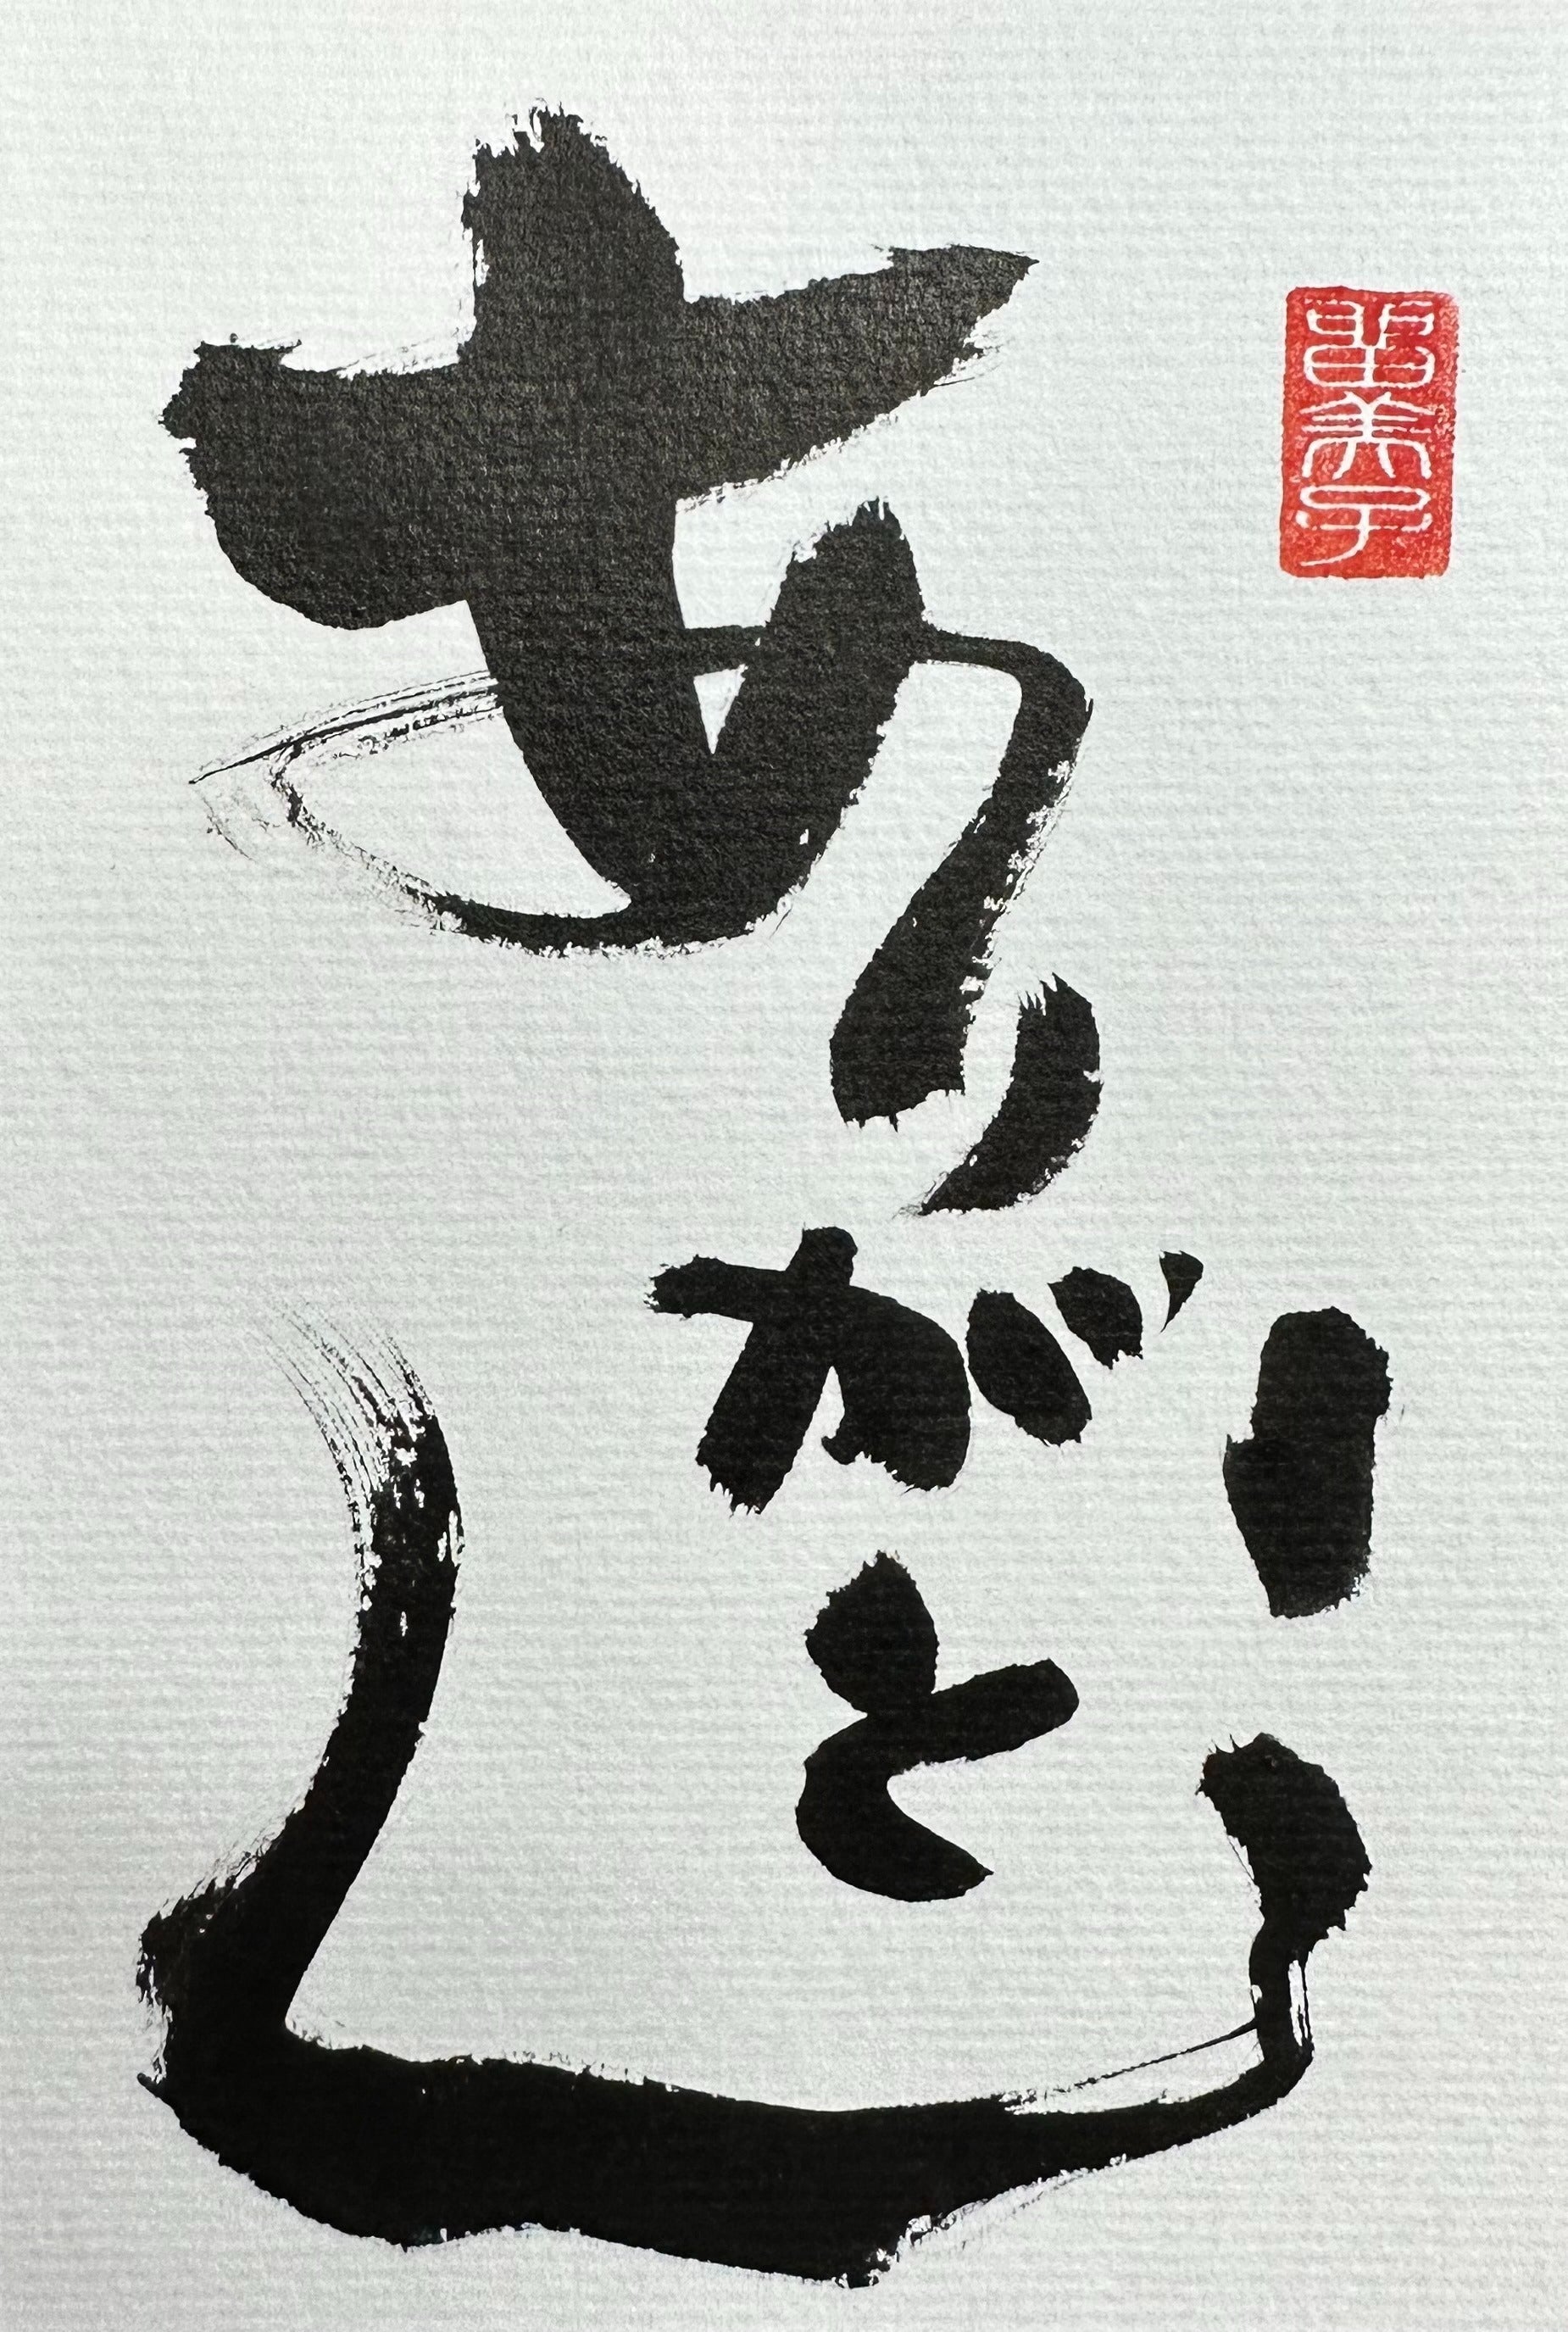 ありがとう
留美子